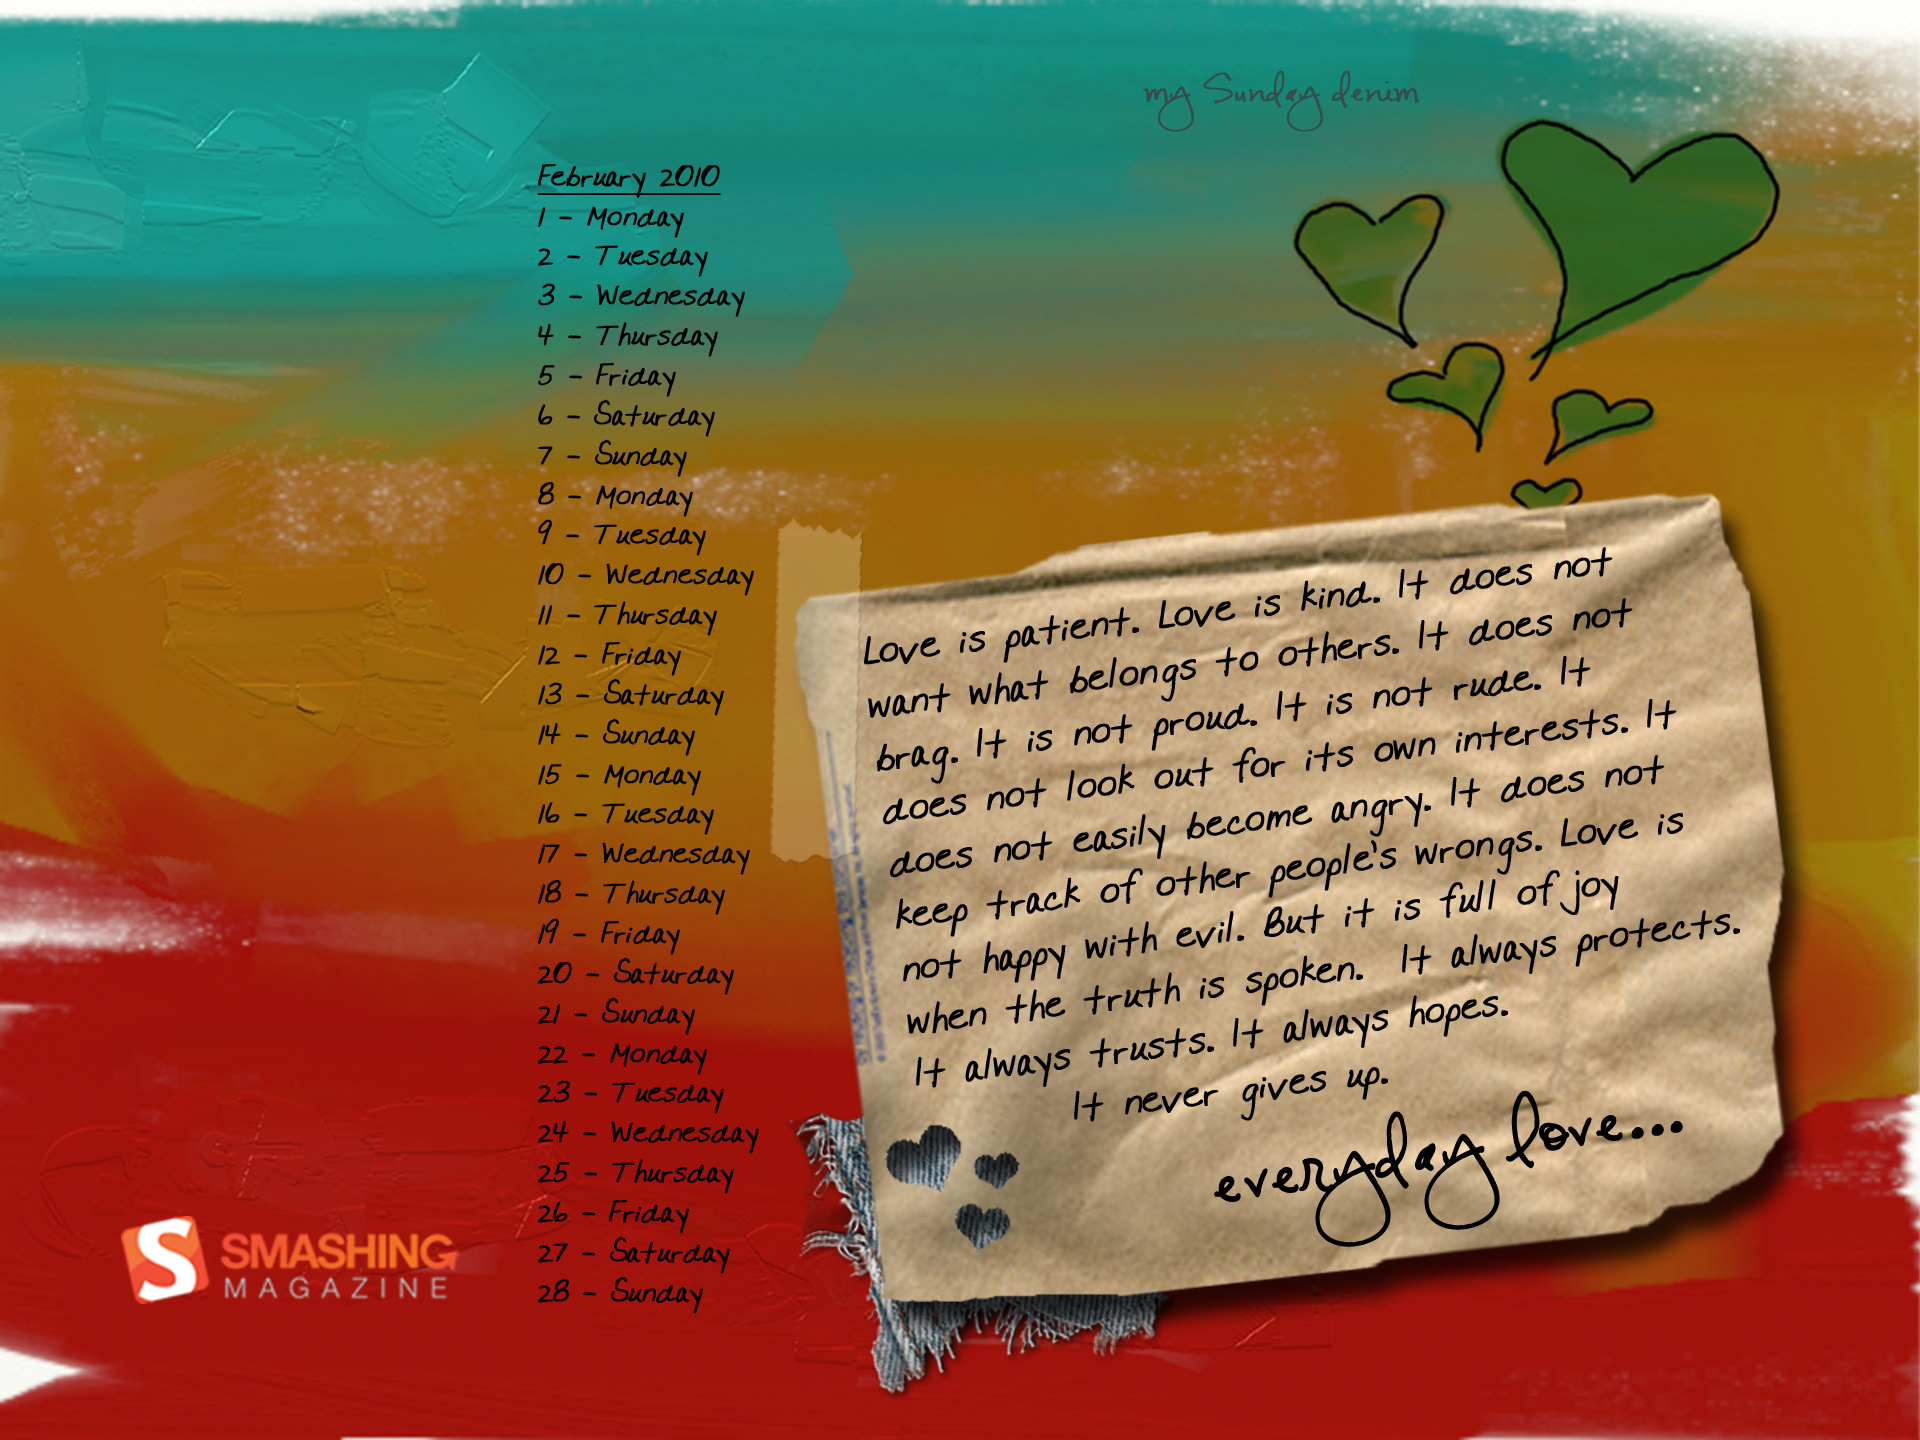 my Sunday denim
February 2010
1 - Monday
2 - Tuesday
3 - Wednesday
4 - Thursday
5 - Friday
6 - Saturday
7 - Sunday
8 - Monday
9 - Tuesday
10 - Wednesday
11 - Thursday
12 - Friday
13 - Saturday
14 - Sunday
15 - Monday
16 - Tuesday
17 - Wednesday
18 - Thursday
19 - Friday
20 - Saturday
21 - Sunday
22 - Monday
23 - Tuesday
24 - Wednesday
25 - Thursday
26 - Friday
27 - Saturday
28 - Sunday
Love is patient. Love is kind. It does not
want what belongs to others. It does not
brag. It is not proud. It is not rude. It
does not look out for its own interests. It
does not easily become angry. It does not
keep track of other people's wrongs. Love is
not happy with evil. But it is full of joy
when the truth is spoken. It always protects.
It always trusts. It always hopes.
It never gives up.
everyday love...
SMASHING
MAGAZINE